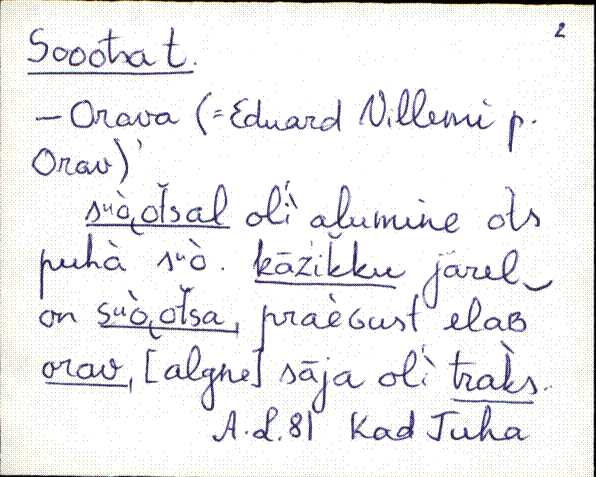 2
Soootsa t.
– Orava (= Eduard Villemi p.
Orav)
sᵘò͔ot̆sal oĺì alumine ots
puhà sᵘò. kāźik̆ku järel
on sᵘò͔ot̆sa, praèGust elaB
orav, [algne] sāja oĺì tràk̀s.
A.L. 81 Kad Juha